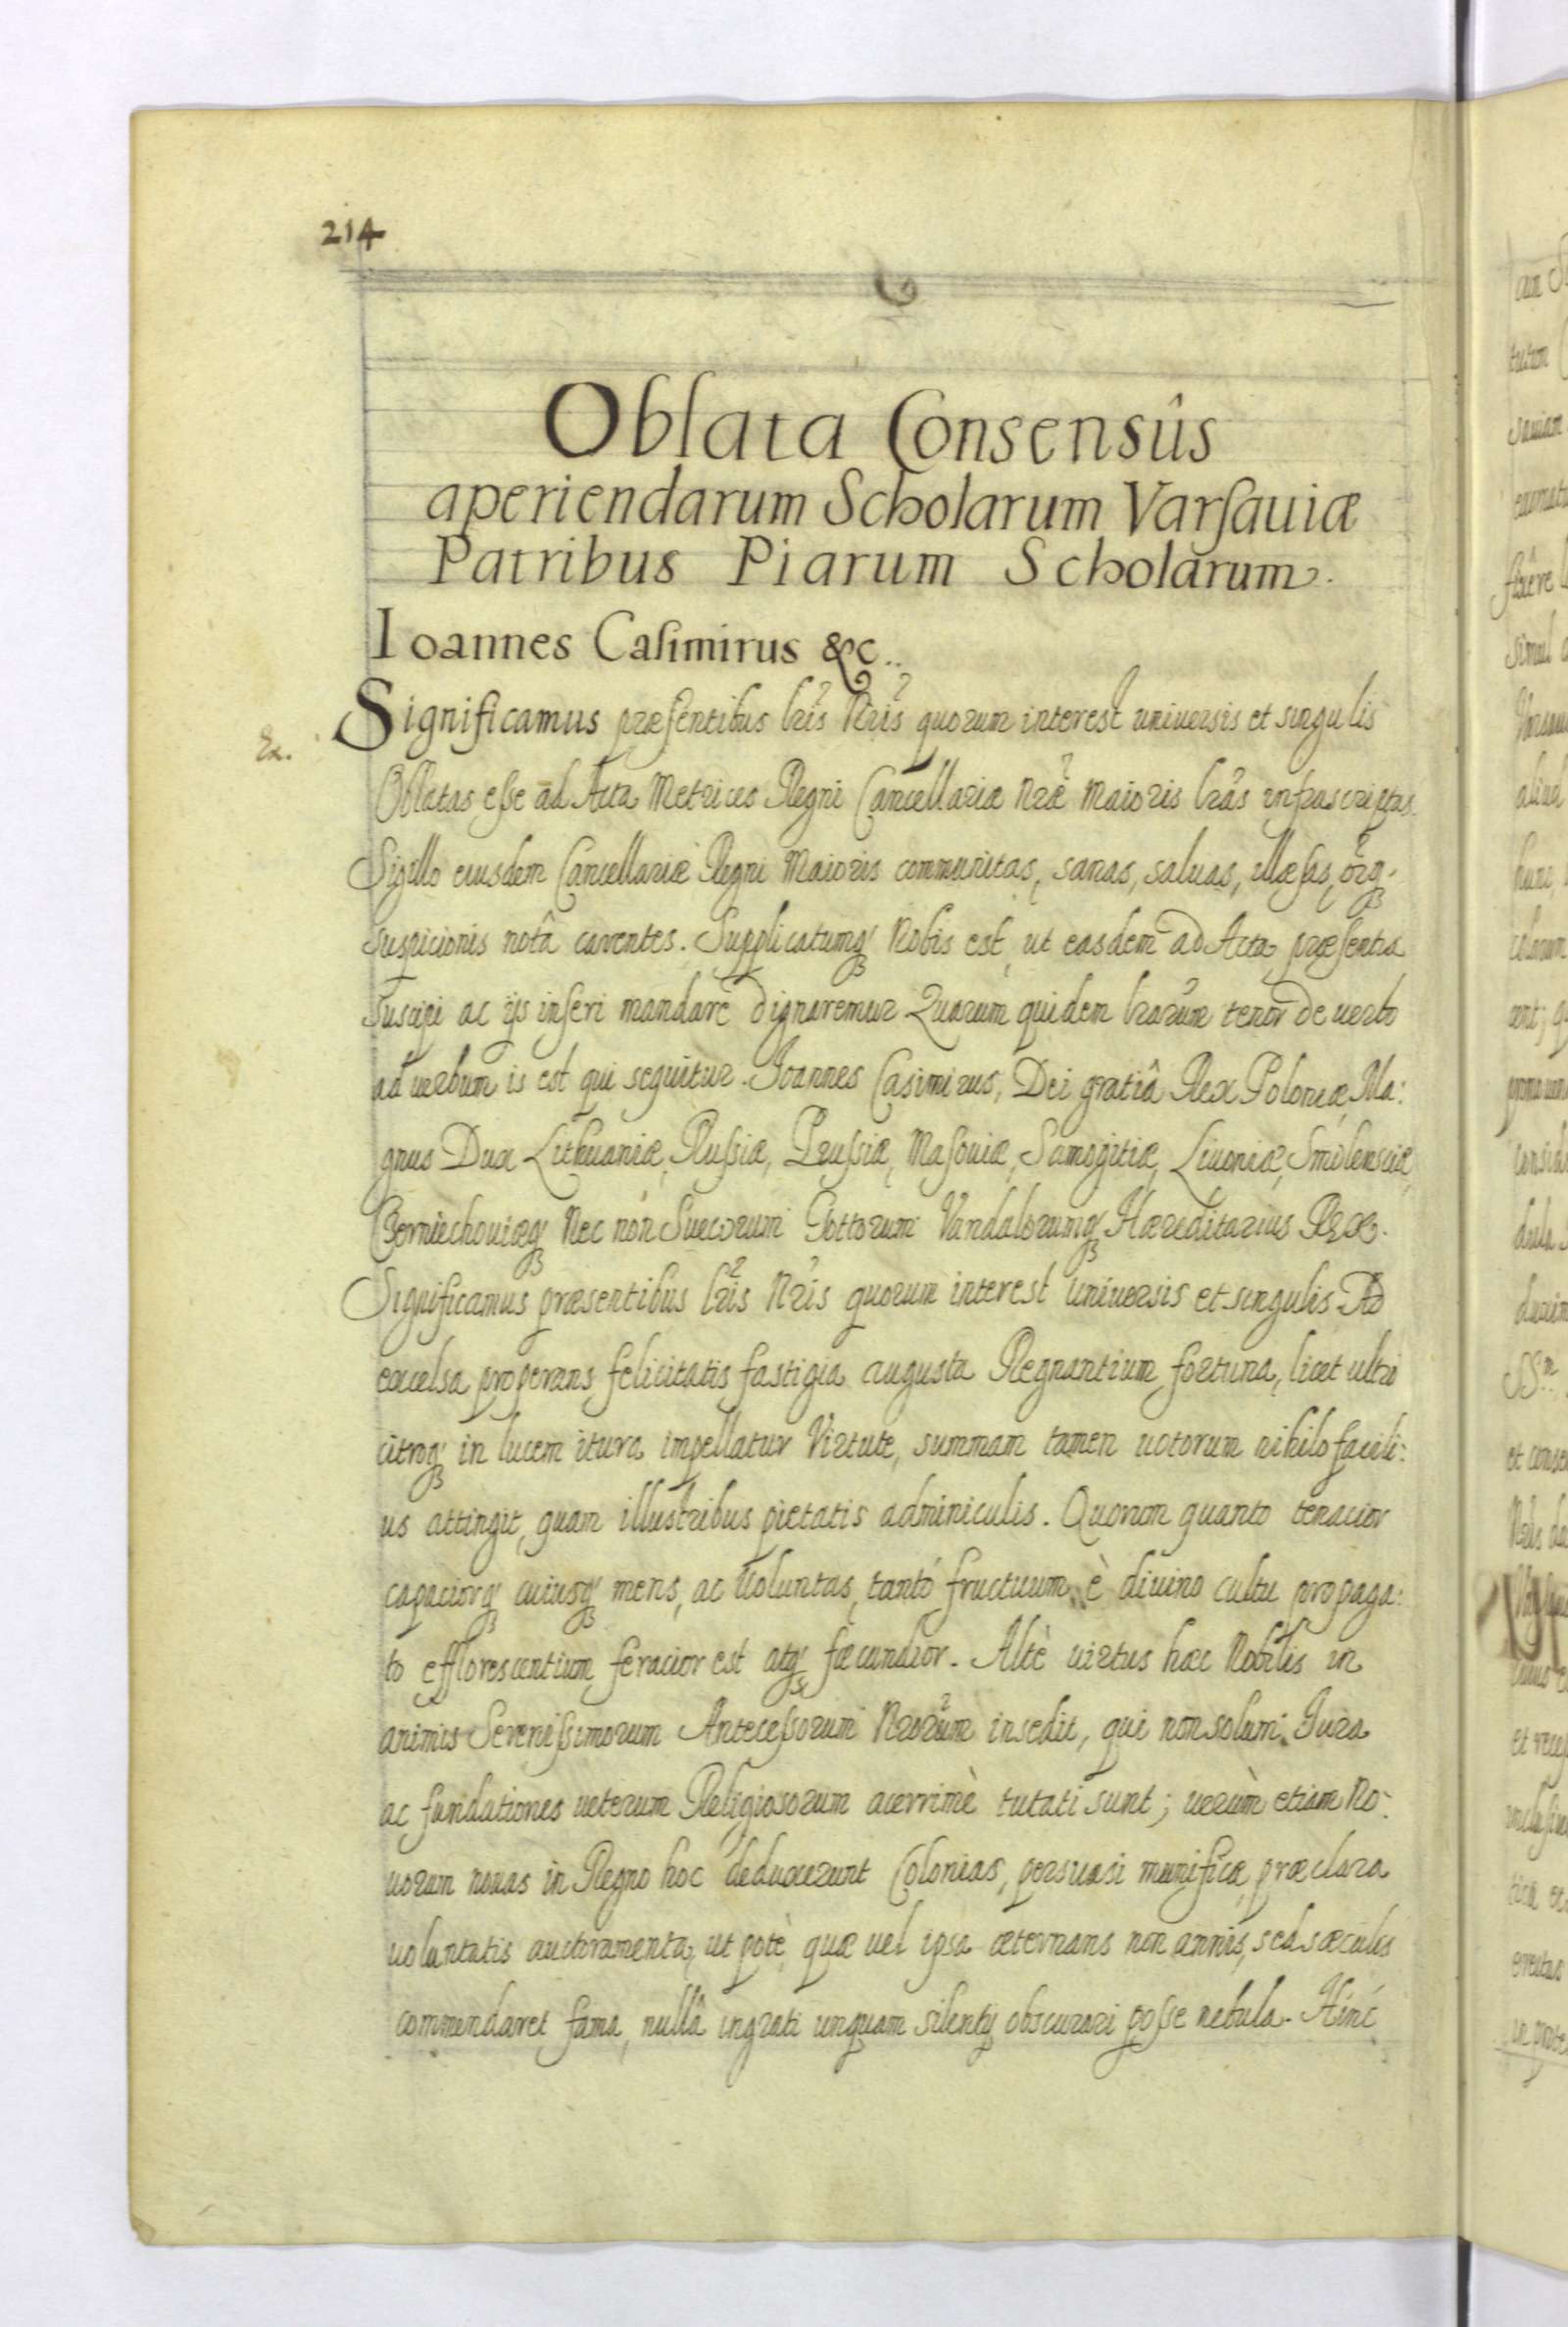 214
Oblata Consensûs
aperiendarum Scholarum Varsauiæ
Patribus Piarum Scholarum.
Ioannes Casimirus &c..
Significamus præsentibus lris Nris quorum interest universis et singulis
Ex.
Oblatas esse ad Acta Metrices Regni Cancellariæ Nræ Maioris lras infrascriptas
Sigillo eiusdem Cancellariæ Regni Maioris communitas, sanas, saluas, illæsas, oẽq;
suspicionis notâ carentes. Supplicatumq; Nobis est, ut easdem ad Acta præsentia
suscipi ac ijs inseri mandare dignaremur Quarum quidem lrarum tenor de uerbo
ad uerbum is est qui sequitur. Ioannes Casimirus, Dei gratiâ Rex Poloniæ, Ma:
gnus Dux Lithuaniæ, Russiæ, Prussiæ, Masouiæ, Samogitiæ, Liuoniæ, Smolensciæ,
Czerniechouiæq; Nec non Suecorum Gottorum Vandalorumq; Hæreditarius Rex.
Significamus præsentibus lris Nris quorum interest universis et singulis. Ad
excelsa properans felicitatis fastigia augusta Regnantium fortuna, licet ultro
citroq; in lucem itura impellatur Virtute, summam tamen uotorum nihilo facili:
us attingit, quam illustribus pietatis adminiculis. Quorum quanto tenacior
capaciorq; cuiusq; mens, ac Voluntas, tantó fructuum è diuino cultu propaga:
to efflorescentium feracior est atq; fæcundior. Altè uirtus hæc Nobilis in
animis Serenissimorum Antecessorum Nrorum insedit, qui non solum Jura
ac fundationes ueterum Religiosorum acerrimè tutati sunt; uerùm etiam No:
uorum nouas in Regno hoc deduxerunt Colonias, persuasi munificæ præclara
uoluntatis auctoramenta, ut potè, quæ uel ipsa æternans non annis, sed sæculis
commendaret fama, nullâ ingrati unquam silentij obscurari posse nebula. Hinc